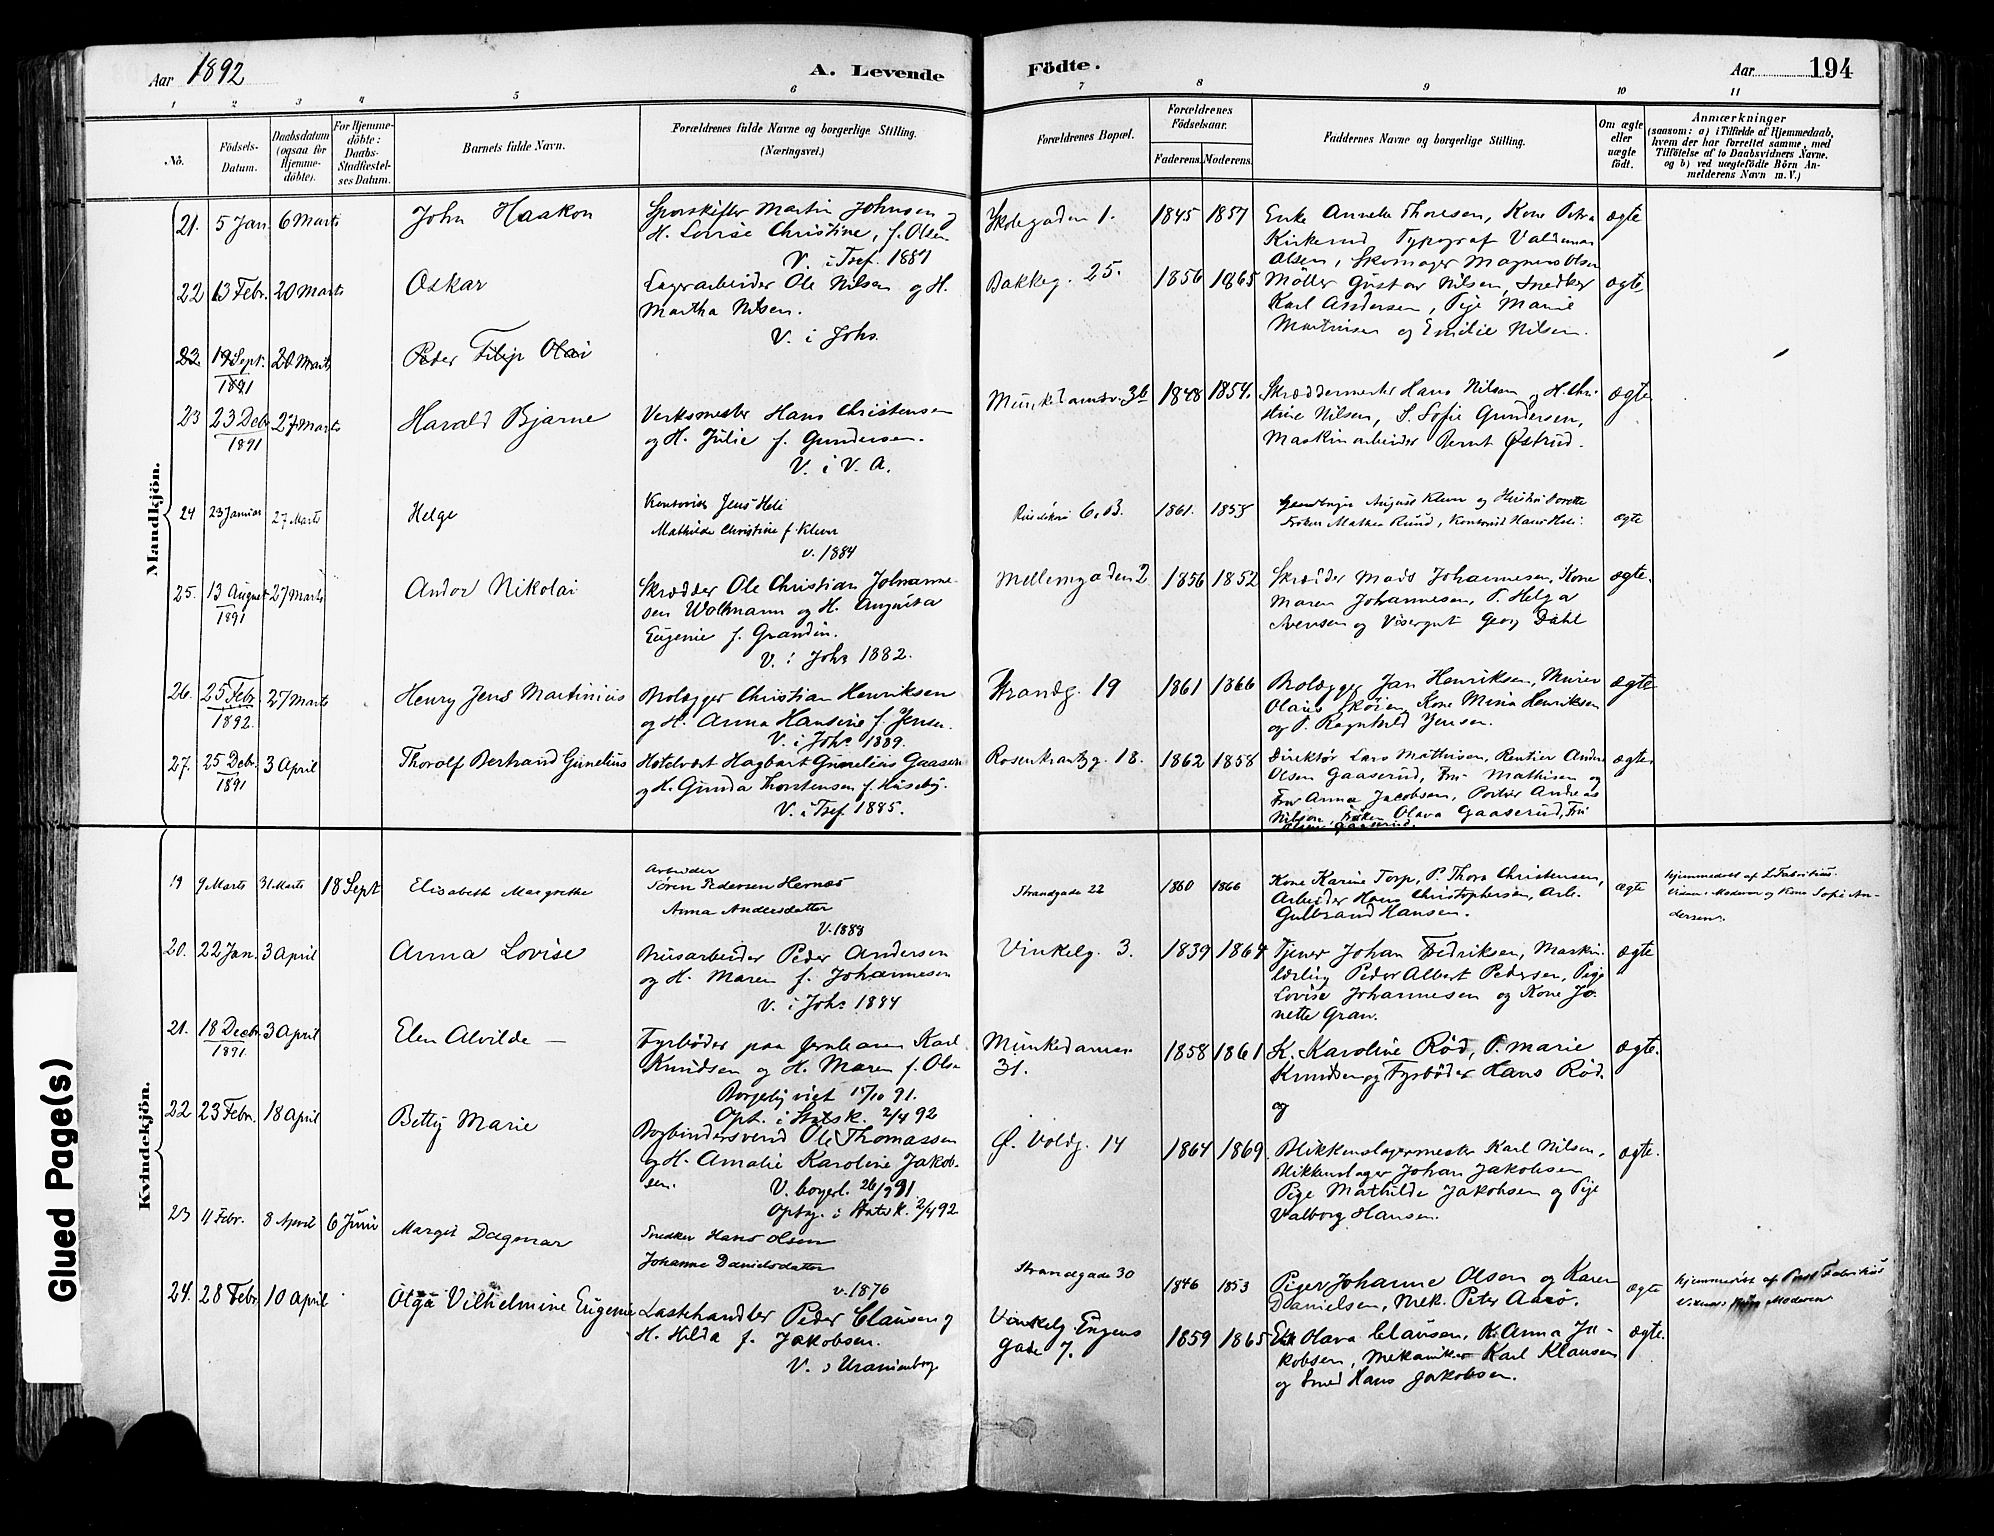 Aar 1892
A. Levende
Födte.
Aar 194
1 2 3 4 5 6 7 8 9 10 11
No.
Födsels-Datum.
Daabsdatum (ogsaa for Hjemme-döbte).
For Hjemme-döbte: Daabs-Stadfæstel-ses Datum.
Barnets fulde Navn.
Forældrenes fulde Navne og borgerlige Stilling.
(Næringsvei.)
Forældrenes Bopæl.
Forældrenes Födselsaar.
Faderens. Moderens.
Faddernes Navne og borgerlige Stilling.
Om ægte eller uægte födt.
Anmærkninger
(saasom: a) i Tilfælde af Hjemmedaab, hvem der har forrettet samme, med Tilföielse af to Daabsvidners Navne. og b) ved uægtefödte Börn An-melderens Navn m. V.)
Mandkjön.
21. 5 Jan. 6 Marts John Haakon
Sporskifter Martin Johnsen og
H. Lovise Christine, f. Olsen
V. i Tref. 1881
Skolegaden 1. 1845 1857
Enke Annette Thoresen, Kone Petra
Kirkerud, Typograf Valdemar
Olsen, Skomager Magnus Olsen
ægte
22 13 Febr. 20 Marts Oskar
Lagerarbeider Ole Nilsen og H.
Martha Nilsen.
V. i Johs.
Bakkeg. 25. 1856 1865
Möller Gustav Nilsen, Snedker
Karl Andersen, Pige Marie
Martinsen og Emilie Nilsen.
ægte
22. 19 Sept. 1891 20 Marts Peder Filip Olai
23 23 Debr 1891 27 Marts Harald Bjarne
Verksmester Hans Christensen
og H. Julie f. Gundersen.
V. i V. A.
Munkedamsv. 36 1848 1854.
Skræddermester Hans Nilsen og H. Chri-
stine Nilsen, S. Sofie Gundersen,
Maskinarbeider Bernt Østrud.
ægte
24 23 Januar 27 Marts Helge
Kontorist Jens Heli
Mathilde Christine f. Klem
v. 1884
6. B. 1861. 1855
August Klem og
Fröken Mathea Ruud, Kontorist Hans Heli.
ægte
25. 13 August 1891 27 Marts Andor Nikolai
Skrædder Ole Christian Johanne-
sen Wolkmann og H. Augusta
Eugenie f. Grandin.
V. i Johs 1882.
Mellemgaden 2 1856 1852
Skrædder Mads Johannesen, Kone
Maren Johannesen, P. Helga
Svensen og Visergut Georg Dahl
ægte.
26. 25 Febr 1892. 27 Marts Henry Jens Martinius
Brolægger Christian Henriksen
og H. Anna Hansine f. Jensen.
V. i Johs. 1889.
Strandg. 19 1861 1866
Brolægger Jan Henriksen, Murer
Olaus Skøien, Kone Mina Henriksen
og P. Ragnhild Jensen.
ægte
27. 25 Debr. 1891 3 April Thorolf Bertrand Gunelius
Hotelvært Hagbart Gunelius Gaaserud
og H. Gunda Thorstensen f. Huseby.
V. i Tref 1885.
Rosenkrantzg. 18. 1862 1858
Direktør Lars Mathisen, Rentier Anders
Olsen Gaaserud, Fru Mathisen og
Fru Anna Jacobsen, Portier Andreas
Nilsen, Frøken Olava Gaaserud, Fru
Olsen Gaaserud.
ægte
Kvindekjön.
19 9 Marts 31 Marts 18 Sept Elisabeth Margrethe
Arbeider
Sören Pedersen Hernæs
Anna Andersdatter
V. 1888
Strandgade 22 1860 1866
Kone Karine Torp, P. Thora Christensen,
Arbeider Hans Christophersen, Arb.
Gulbrand Hansen.
ægte
Hjemmedøbt af L. Fabritius.
Vidner: Moderen og Kone Sofie An-
dersen.
20. 22 Jan. 3 April Anna Lovise
Brusarbeider Peder Andersen
og H. Maren f. Johannesen
V. i Johs 1884
Vinkelg. 3. 1839 1864
Tjener Johan Fredriksen, Maskin-
lærling Peder Albert Pedersen, Pige
Lovise Johannesen og Kone Jo-
nette Gran.
ægte
21. 18 Decbr. 1891. 3 April Elen Alvilde
Fyrbøder paa Jernbanen Karl
Knudsen og H. Maren f. Olsen
Borgerlig viet 15/10 91.
Opt. i Statsk. 2/4 92
Munkedamsv. 31. 1858 1861
K. Karoline Rød, P. Marie
Knudsen og Fyrbøder Hans Rød.
og
ægte.
22 23 Febr. 18 April Betty Marie
Bogbindersvend Ole Thomassen
og H. Amalie Karoline Jakob-
sen.
V. borgerl. 26/9 91
Optag. i Statsk. 2/4 92
Ø. Voldg. 14 1864 1869.
Blikkenslagermester Karl Nilsen,
Blikkenslager Johan Jakobsen
Pige Mathilde Jakobsen og Pige
Valborg Hansen.
ægte.
23 11 Febr. 8 April 6 Juni Margit Dagmar
Snedker Hans Olsen
Johanne Danielsdatter
v. 1876
Strandgade 30 1846 1853
Piger Johanne Olsen og Karen
Danielsen, Mek. Peter Aasø.
ægte
Hjemmedøbt af Past. Fabritius
Vidner Moderen
24. 28 Febr. 10 April Olga Vilhelmine Eugenie
Lastehandler Peder Clausen og
H. Hilda f. Jakobsen.
V. i Uranienborg
Vinkelg. Engens
Gade 7. 1859 1865
Enke Olava Clausen, K. Anna Ja-
kobsen, Mekaniker Karl Klausen
og Smed Hans Jakobsen.
ægte.
Glued Page(s)